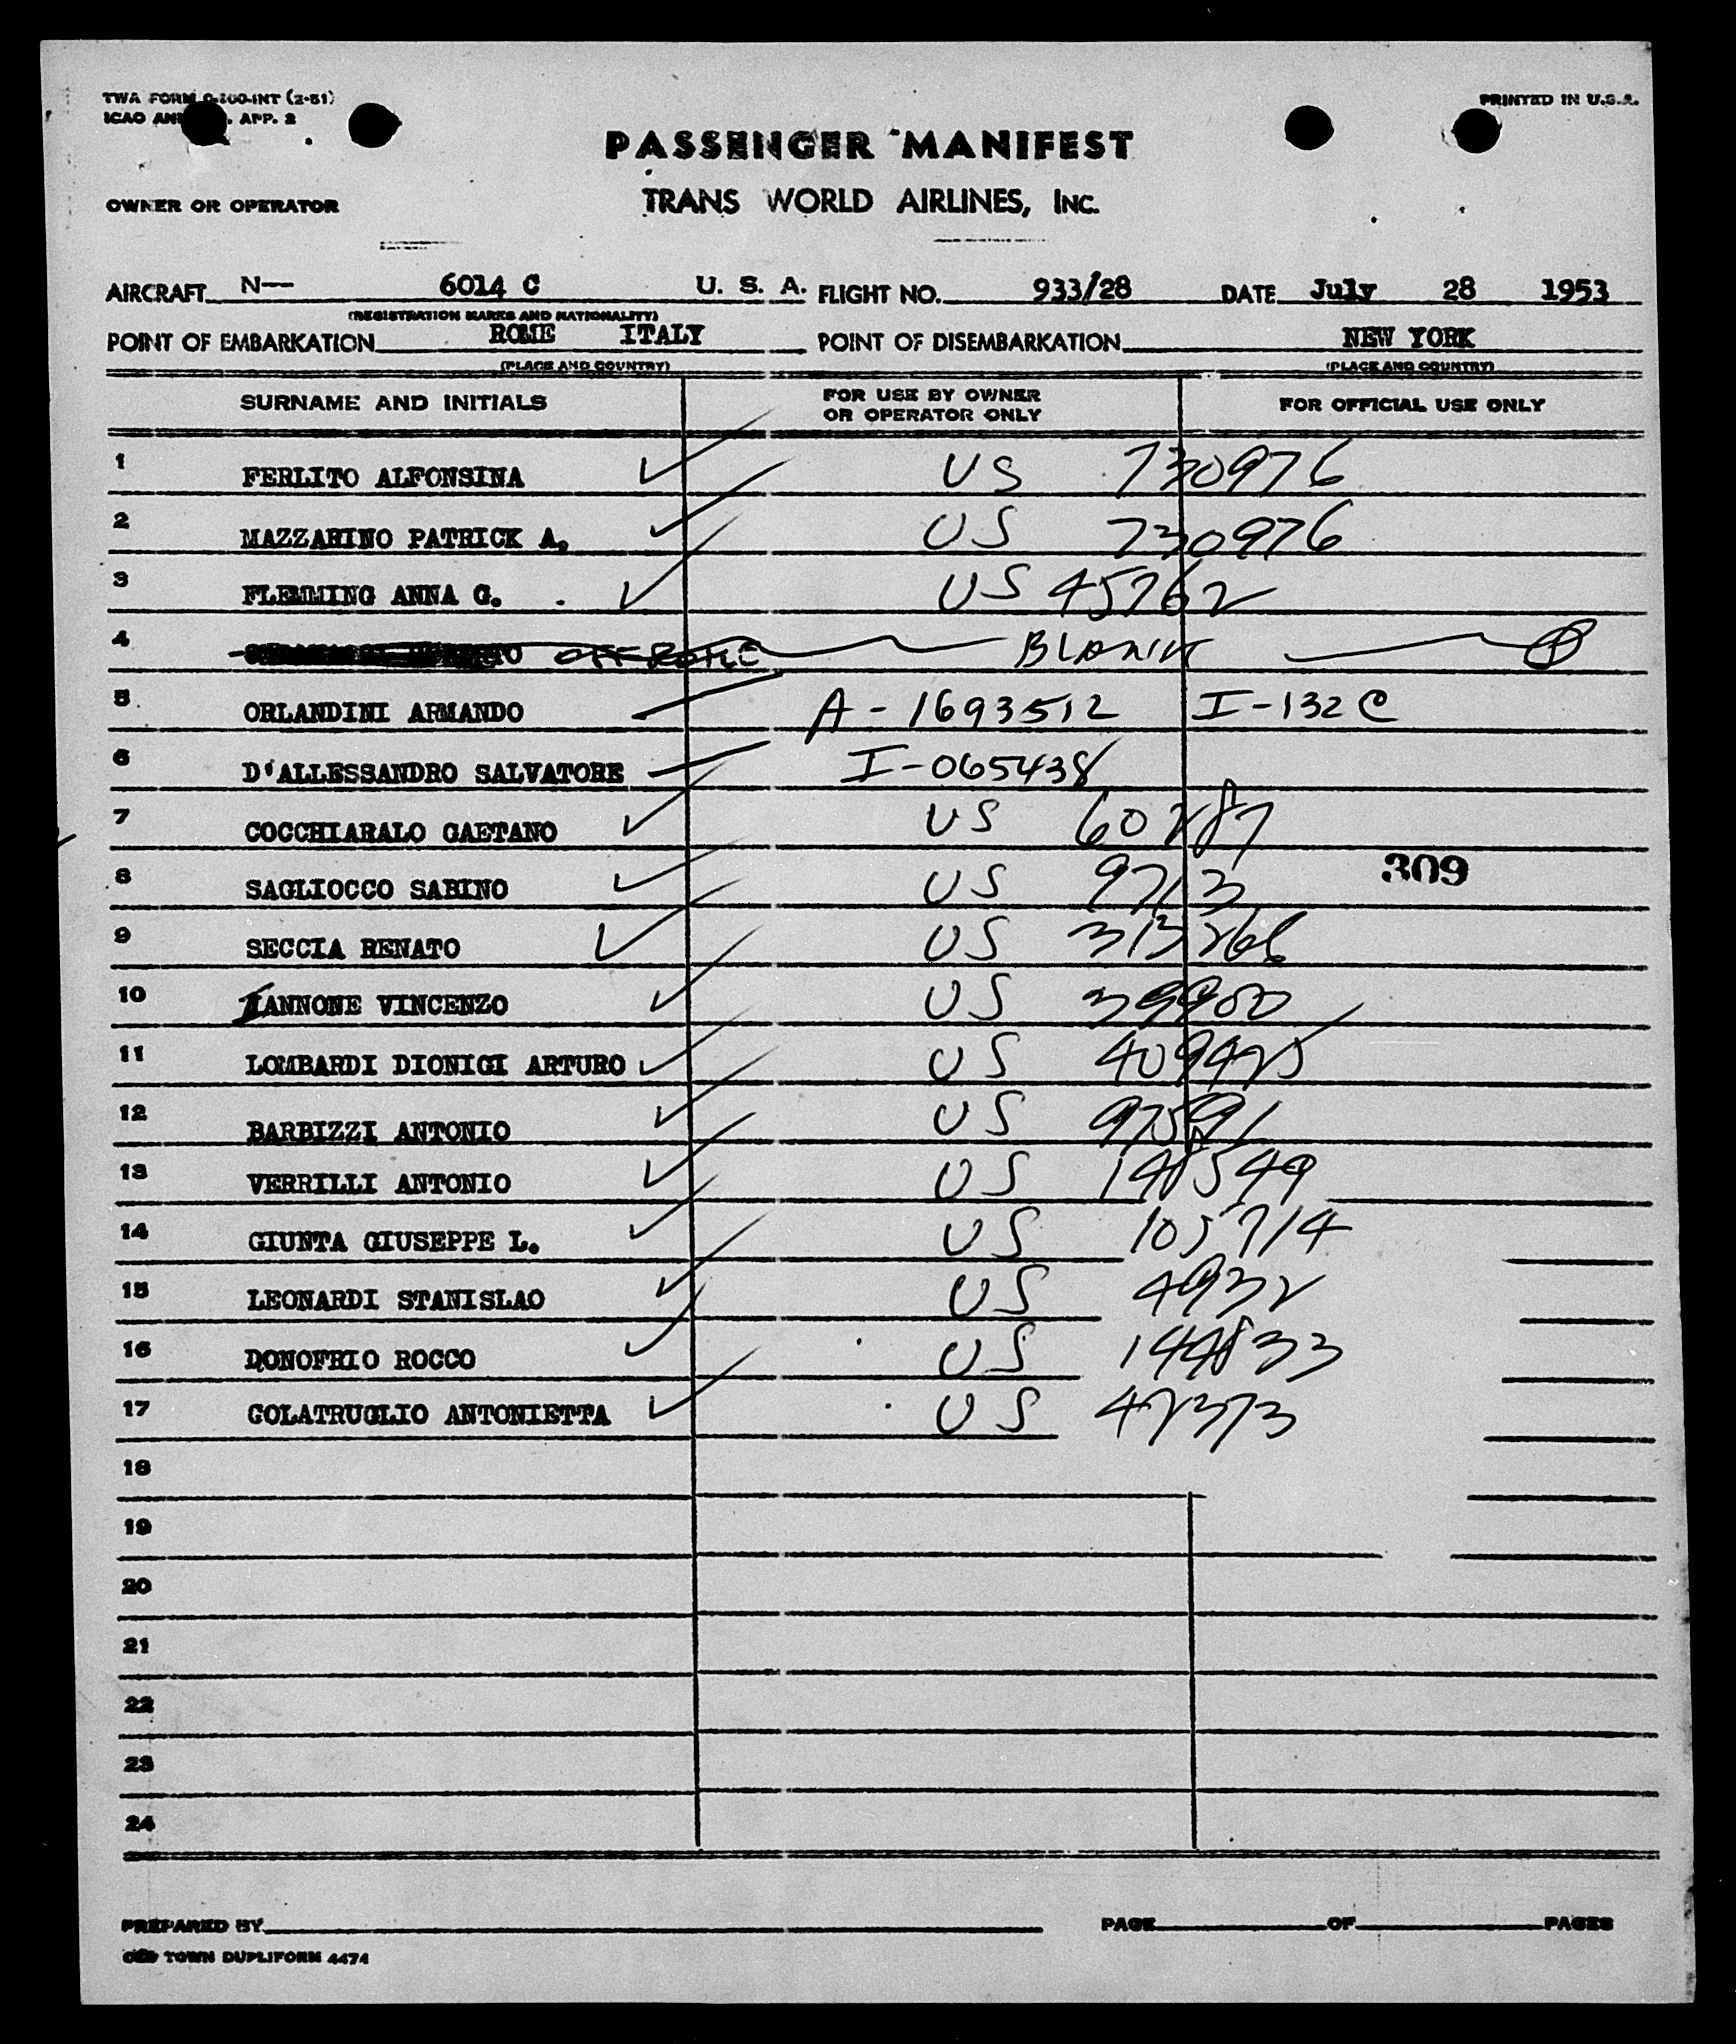 TWA FORM O-100-INT (2-51)
PRINTED IN U.S.A.
ICAO . APP. 2
PASSENGER MANIFEST
OWNER OR OPERATOR TRANS WORLD AIRLINES, INC.
AIRCRAFT N— 6014 C U. S. A. FLIGHT NO. 933/28 DATE July 28 1953
(REGISTRATION MARKS AND NATIONALITY)
POINT OF EMBARKATION ROME ITALY POINT OF DISEMBARKATION NEW YORK
(PLACE AND COUNTRY) (PLACE AND COUNTRY)
SURNAME AND INITIALS FOR USE BY OWNER OR OPERATOR ONLY FOR OFFICIAL USE ONLY
1 FERLITO ALFONSINA US 730976
2 MAZZARINO PATRICK A. US 730976
3 FLEMMING ANNA G. US 45762
4 OFF ROME BLANK
5 ORLANDINI ARMANDO A-1693512 I-132C
6 D'ALLESSANDRO SALVATORE I-065438
7 COCCHIARALO GAETANO US 60287
309
8 SAGLIOCCO SABINO US 9713
9 SECCIA RENATO US 313266
10 IANNONE VINCENZO US
11 LOMBARDI DIONIGI ARTURO US 409425
12 BARBIZZI ANTONIO US 97591
13 VERRILLI ANTONIO US 148549
14 GIUNTA GIUSEPPE L. US 105714
15 LEONARDI STANISLAO US 4932
16 DONOFRIO ROCCO US 144833
17 GOLATRUGLIO ANTONIETTA US 42373
18
19
20
21
22
23
24
PREPARED BY PAGE OF PAGES
OLD TOWN DUPLIFORM 4474